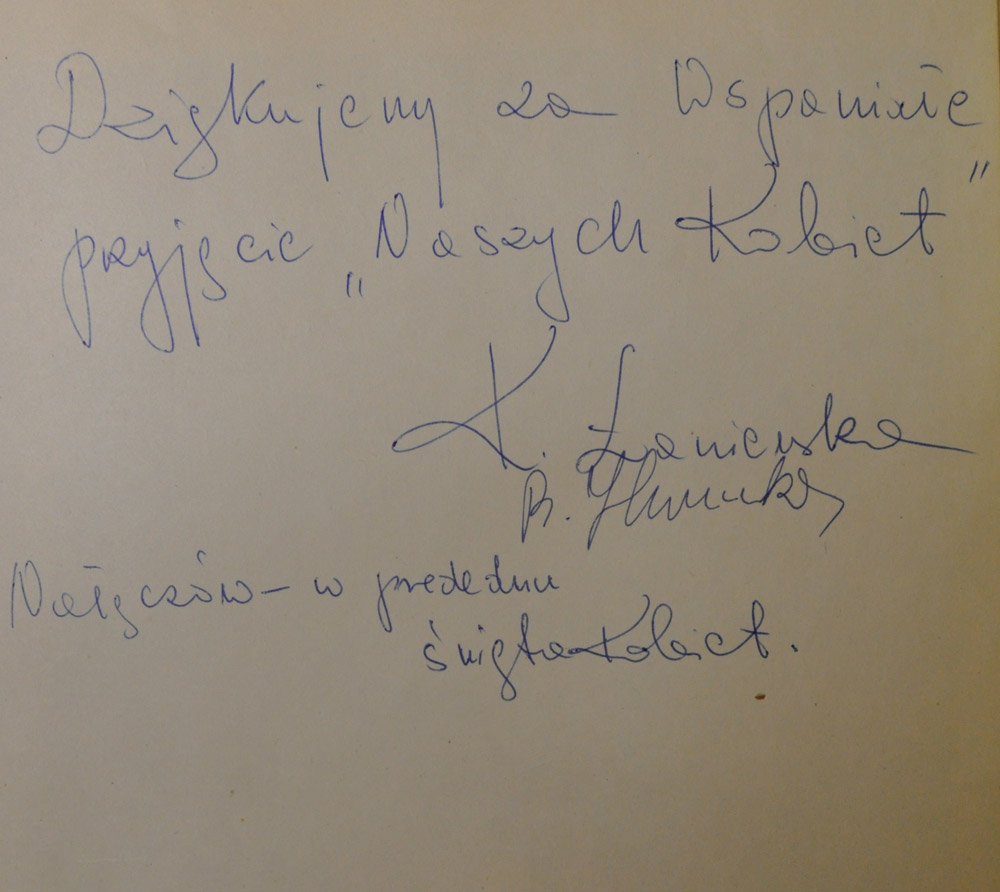 Dziękujemy za Wspaniałe
przyjęcie „Naszych Kobiet"
K. Łaniewska
B.
Nałęczów - w przededniu
święta Kobiet.